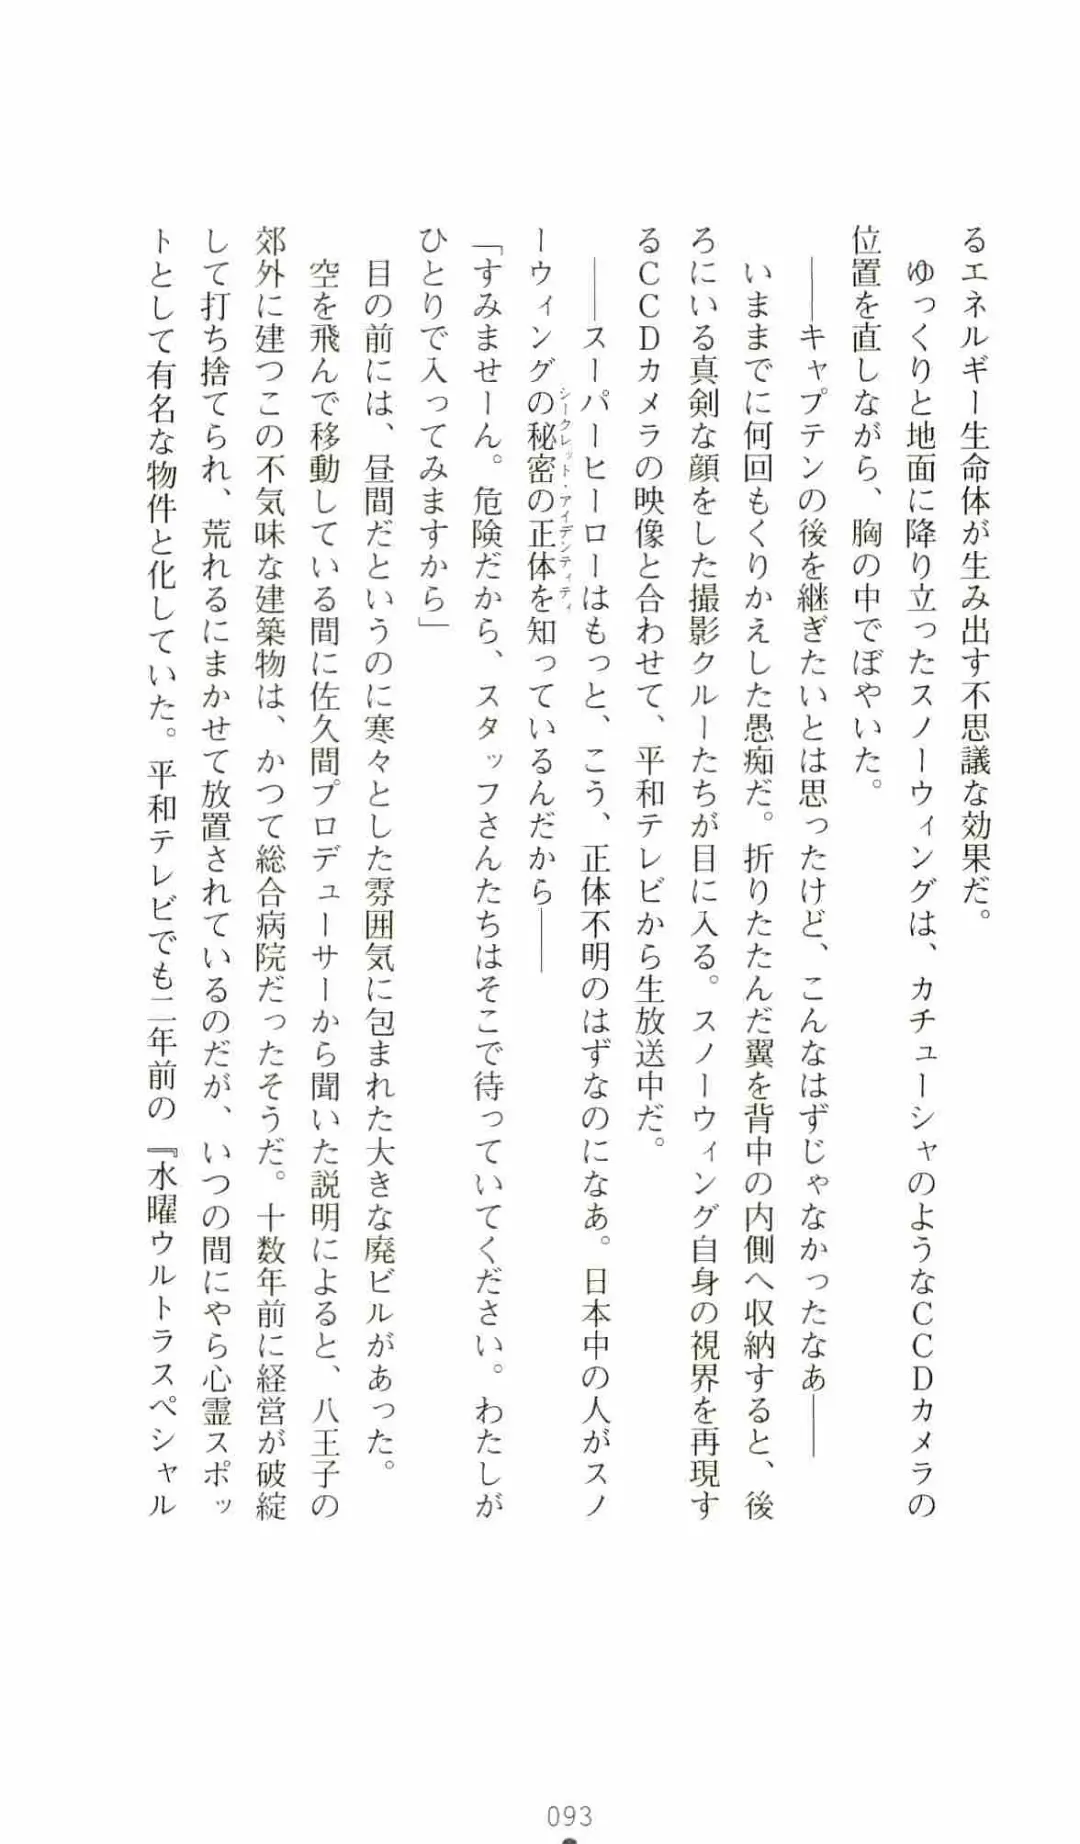 るエネルギー生命体が生み出す不思議な効果だ。
ゆっくりと地面に降り立ったスノーウィングは、カチューシャのようなCCDカメラの
位置を直しながら、胸の中でぼやいた。
――キャプテンの後を継ぎたいとは思ったけど、こんなはずじゃなかったなぁ――
いままでに何回もくりかえした愚痴だ。折りたたんだ翼を背中の内側へ収納すると、後
ろにいる真剣な顔をした撮影クルーたちが目に入る。スノーウィング自身の視界を再現す
るCCDカメラの映像と合わせて、平和テレビから生放送中だ。
――スーパーヒーローはもっと、こう、正体不明のはずなのになぁ。日本中の人がスノ
シークレット・アイデンティティ
ーウィングの秘密の正体を知っているんだから――
「すみませーん。危険だから、スタッフさんたちはそこで待っていてください。わたしが
ひとりで入ってみますから」
目の前には、昼間だというのに寒々とした雰囲気に包まれた大きな廃ビルがあった。
空を飛んで移動している間に佐久間プロデューサーから聞いた説明によると、八王子の
郊外に建つこの不気味な建築物は、かつて総合病院だったそうだ。十数年前に経営が破綻
して打ち捨てられ、荒れるにまかせて放置されているのだが、いつの間にやら心霊スポッ
トとして有名な物件と化していた。平和テレビでも二年前の『水曜ウルトラスペシャル
093